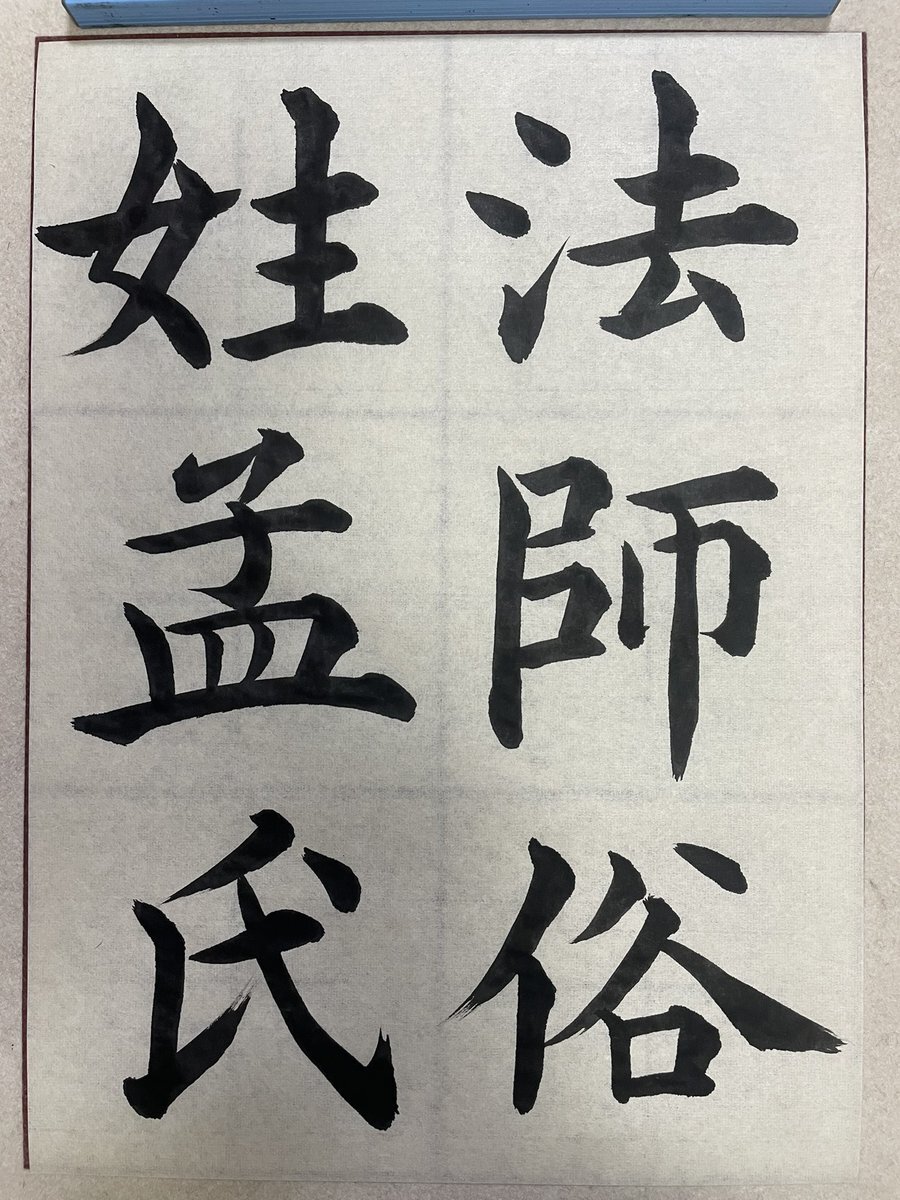 法師俗
姓孟氏